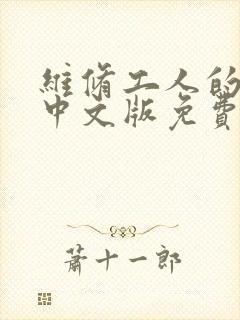 維修工人的
中文版免費
蕭十一郎